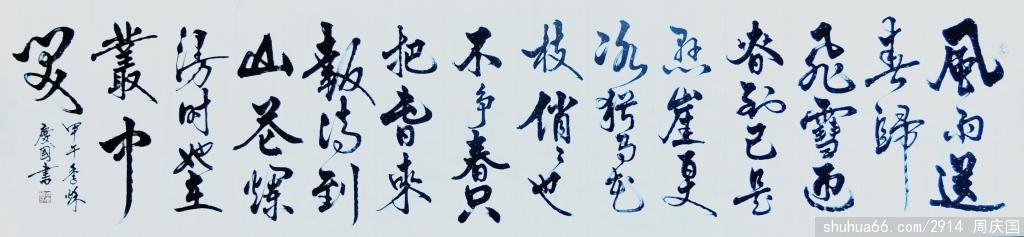 風雨送
春歸
飛雪迎
春到已是
懸崖百丈
冰猶有花
枝俏〻也
不争春只
把春來
報待到
山花爛
漫時她在
叢中
笑
甲午季秋
慶國書
shuhua66.com/2914 周庆国